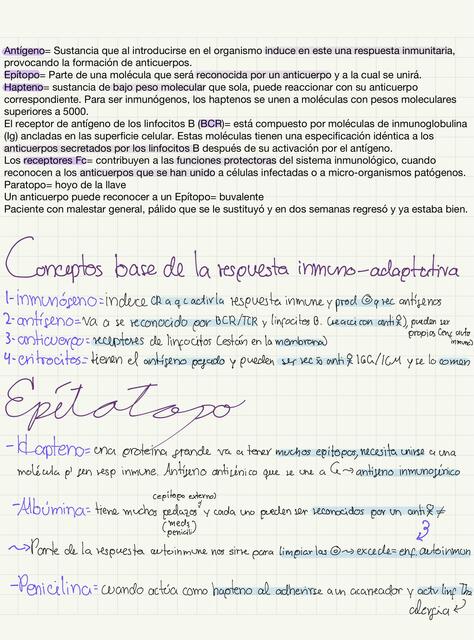 Antígeno= Sustancia que al introducirse en el organismo induce en este una respuesta inmunitaria,
provocando la formación de anticuerpos.
Epítopo= Parte de una molécula que será reconocida por un anticuerpo y a la cual se unirá.
Hapteno= sustancia de bajo peso molecular que sola, puede reaccionar con su anticuerpo
correspondiente. Para ser inmunógenos, los haptenos se unen a moléculas con pesos moleculares
superiores a 5000.
El receptor de antígeno de los linfocitos B (BCR)= está compuesto por moléculas de inmunoglobulina
(Ig) ancladas en las superficie celular. Estas moléculas tienen una especificación idéntica a los
anticuerpos secretados por los linfocitos B después de su activación por el antígeno.
Los receptores Fc= contribuyen a las funciones protectoras del sistema inmunológico, cuando
reconocen a los anticuerpos que se han unido a células infectadas o a micro-organismos patógenos.
Paratopo= hoyo de la llave
Un anticuerpo puede reconocer a un Epítopo= buvalente
Paciente con malestar general, pálido que se le sustituyó y en dos semanas regresó y ya estaba bien.
Conceptos base de la respuesta inmuno-adaptativa
1-inmunógeno= induce a q activ la respuesta inmune y prod rec antígenos
2-antígeno= va a se reconocido por BCR/TCR y linfocitos B. (reacc con anti), pueden ser
propios (enf auto
inmune)
3-anticuerpo= receptores de linfocitos (están en la membrana)
4-eritrocitos= tienen el antígeno pegado y pueden ser rec x anti IGG/IGM y se lo comen
Epítotopo
-Hapteno= una proteína grande va a tener muchos epítopos, necesita unirse a una
molécula p' gen resp inmune. Antígeno antigénico que se une a → antígeno inmunogénico
(epítopo externo)
-Albúmina= tiene muchos pedazos y cada uno pueden ser reconocidos por un anti ≠
(meds)
penicili
3
Parte de la respuesta autoinmune nos sirve para limpiar las → excede= enf. autoinmun
-Penicilina= cuando actúa como hapteno al adherirse a un acarreador y activ linf Th2
alergia